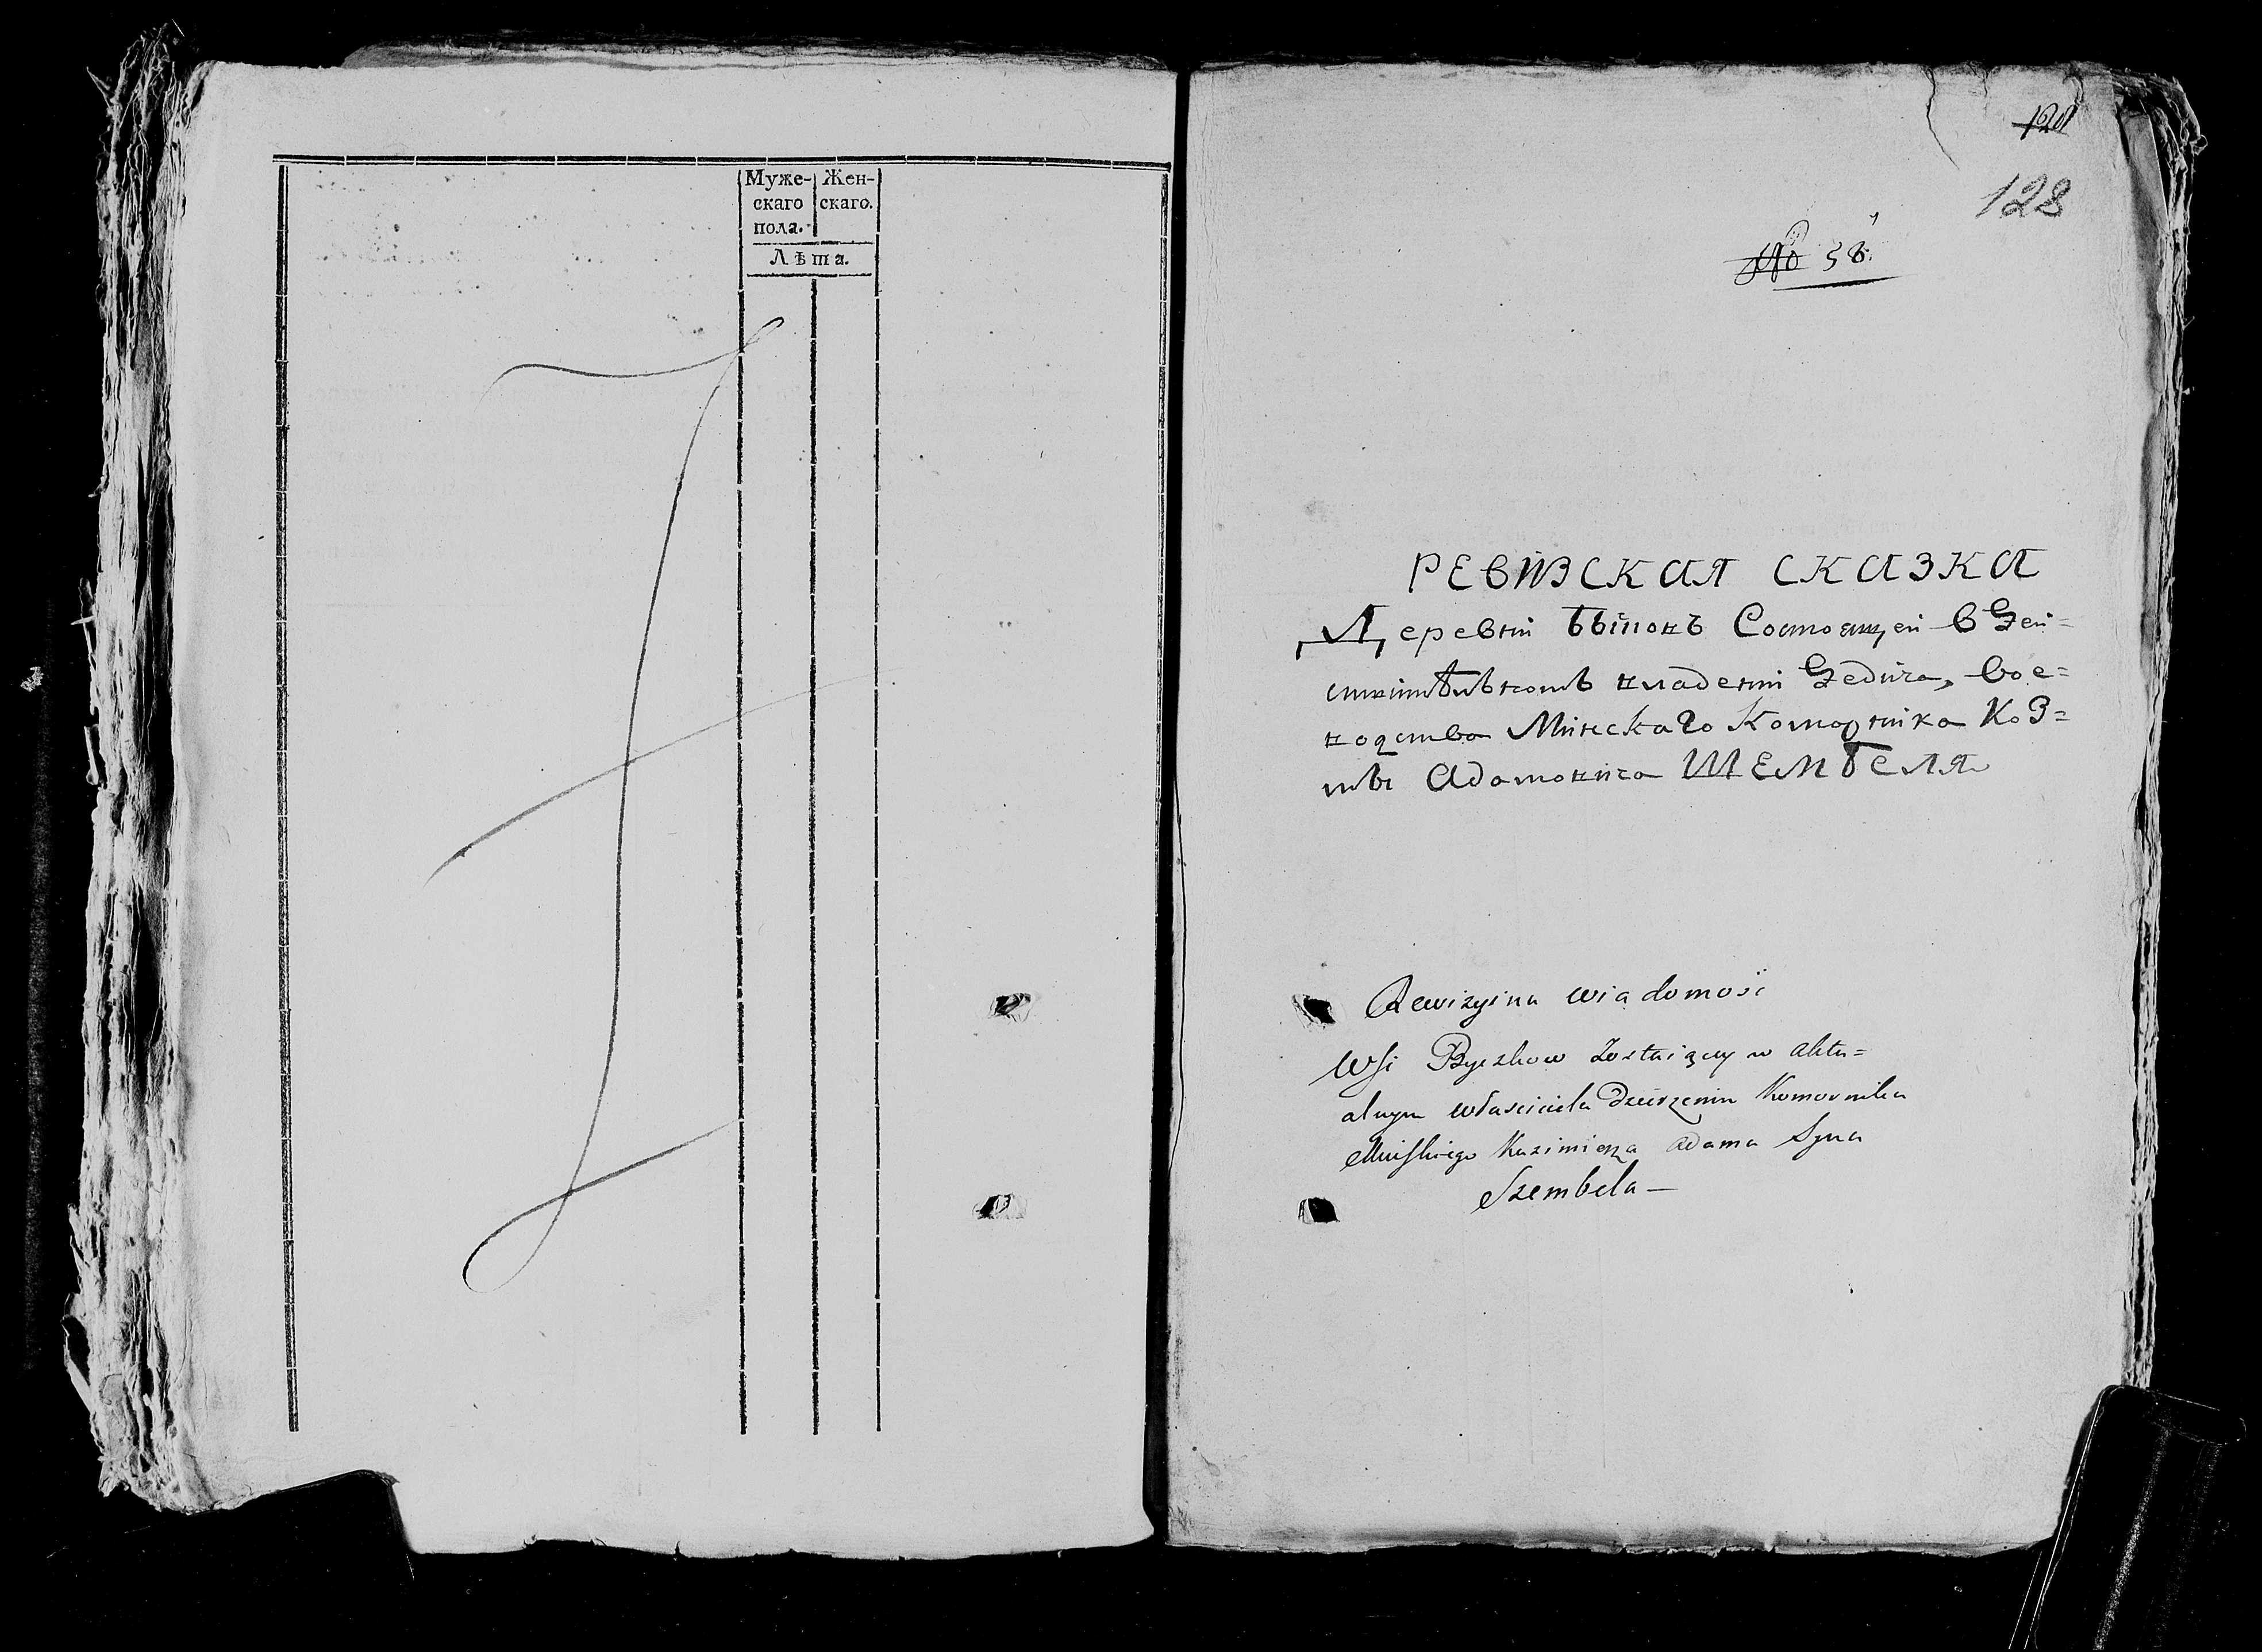 Муже-
скаго
пола.
Жен-
скаго.
Лѣта.
128
58.
РЕВИЗСКАЯ СКАЗКА
Деревни Состоящей в Деи=
владении Дедича, вое=
водства Минскаго Коморника КаЗ=
Адамовича ШЕМБЕЛЯ
Rewizyina wiadomość
Wsi Byczkow Zostaiący w aktu=
alnym własciciela Dzierzeniu Komornika
Minskiego Kazimierza Adama Syna
Szembela —